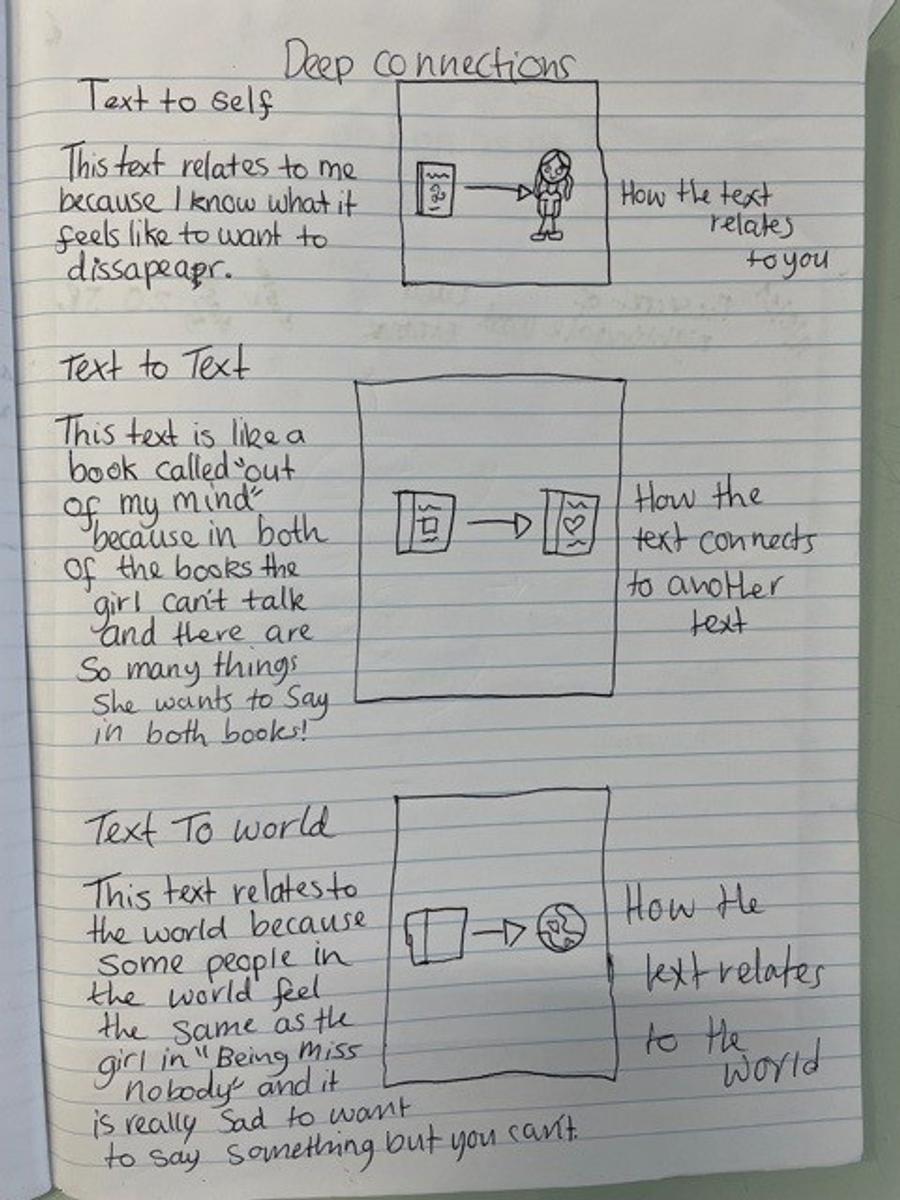 Deep connections
Text to self
This text relates to me
because I know what it
feels like to want to
dissapeapr.
How the text
relates
to you
Text to Text
This text is like a
book called "out
of my mind"
because in both
of the books the
girl can't talk
and there are
So many things
She wants to Say
in both books!
How the
text connects
to another
text
Text To world
This text relates to
the world because
Some people in
the world feel
the same as the
girl in "Being Miss
Nobody" and it
is really Sad to want
to say Something but you can't.
How the
text relates
to the
world